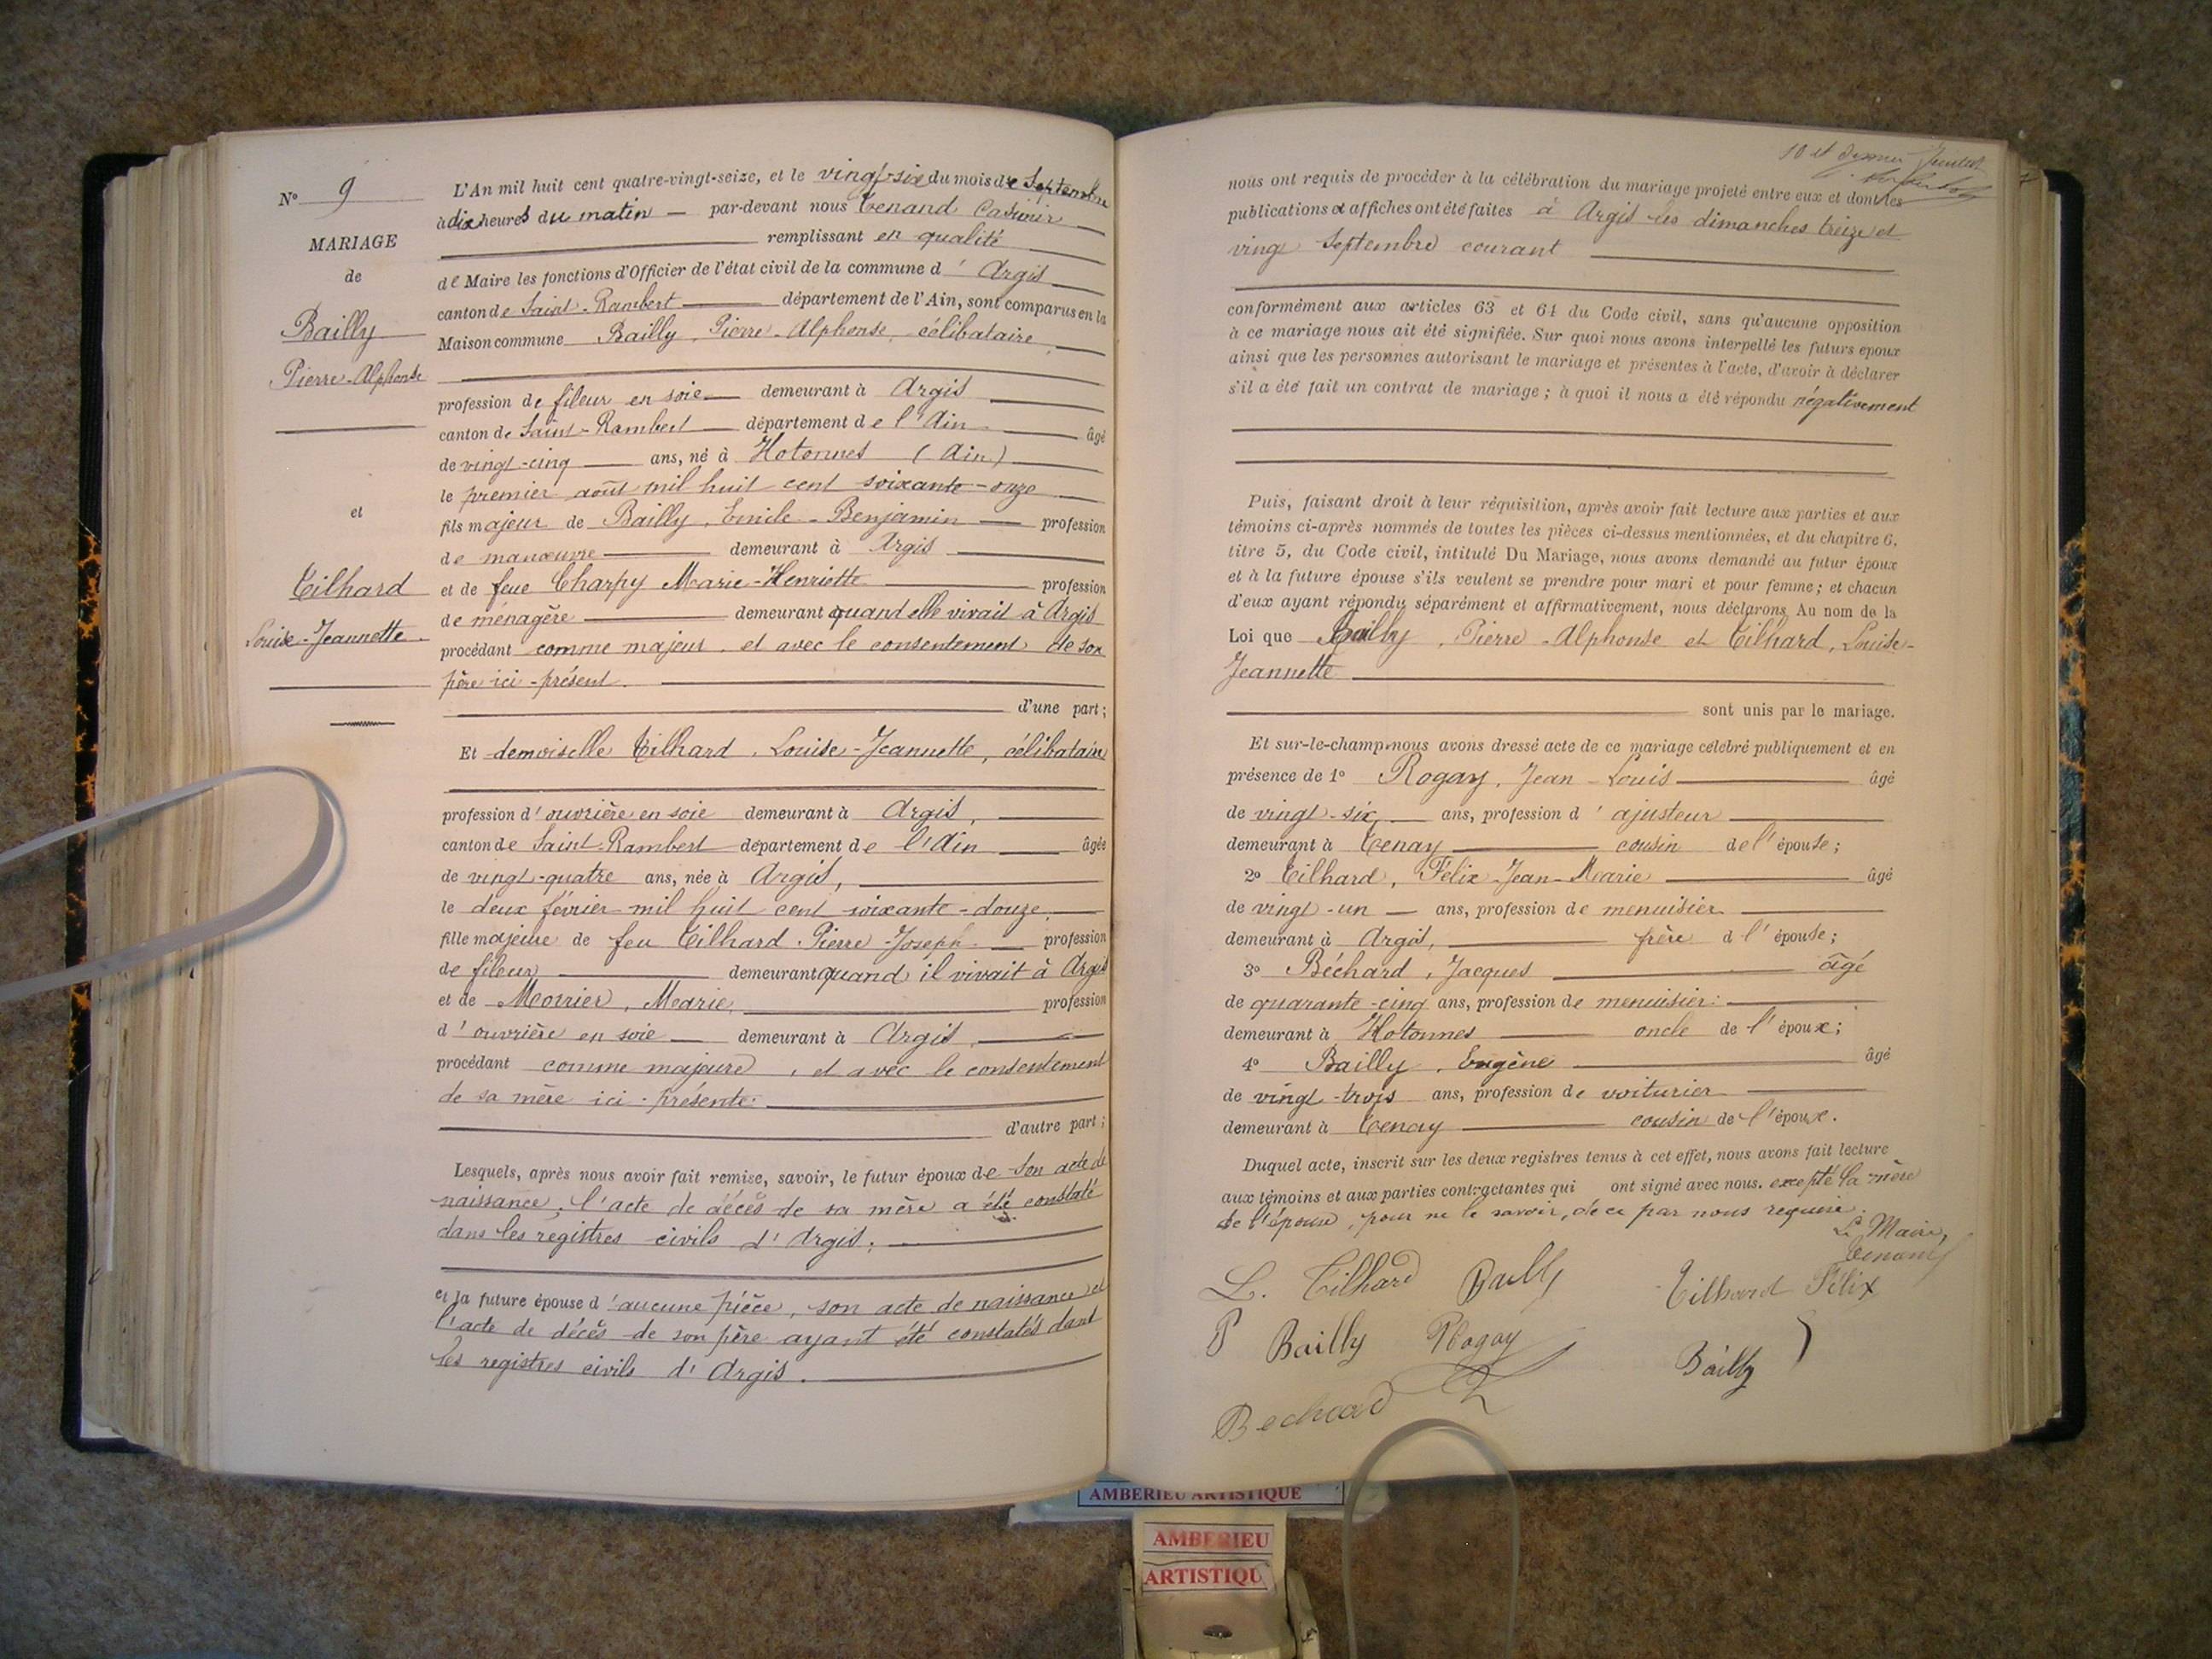 N° 9
MARIAGE
de
Bailly
Pierre-Alphonse
et
Tilhard
Louise-Jeannette
L'An mil huit cent quatre-vingt-seize, et le vingt-six du mois de Septembre
à dix heures du matin — par-devant nous Tenand Casimir
remplissant en qualité
de Maire les fonctions d'Officier de l'état civil de la commune d' Argis
canton de Saint-Rambert département de l'Ain, sont comparus en la
Maison commune Bailly, Pierre-Alphonse, célibataire,
profession de fileur en soie demeurant à Argis
canton de Saint-Rambert département de l'Ain âgé
de vingt-cinq ans, né à Hotonnes (Ain)
le premier août mil huit cent soixante-onze
fils majeur de Bailly, Emile-Benjamin profession
de manœuvre demeurant à Argis
et de feue Charpy Marie-Henriette profession
de ménagère demeurant quand elle vivait à Argis
procédant comme majeur, et avec le consentement de son
père ici-présent.
d'une part;
Et demoiselle Tilhard, Louise-Jeannette, célibataire
profession d'ouvrière en soie demeurant à Argis,
canton de Saint-Rambert département de l'Ain âgée
de vingt-quatre ans, née à Argis,
le deux février mil huit cent soixante-douze,
fille majeure de feu Tilhard Pierre-Joseph profession
de fileur demeurant quand il vivait à Argis
et de Meorier, Marie, profession
d'ouvrière en soie demeurant à Argis,
procédant comme majeure, et avec le consentement
de sa mère ici-présente.
d'autre part;
Lesquels, après nous avoir fait remise, savoir, le futur époux de son acte de
naissance, l'acte de décès de sa mère a été constaté
dans les registres civils d'Argis;
et la future épouse d'aucune pièce, son acte de naissance et
l'acte de décès de son père ayant été constatés dans
les registres civils d'Argis.
10 et dernier
nous ont requis de procéder à la célébration du mariage projeté entre eux et dont les
publications et affiches ont été faites à Argis les dimanches treize et
vingt Septembre courant
conformément aux articles 63 et 64 du Code civil, sans qu'aucune opposition
à ce mariage nous ait été signifiée. Sur quoi nous avons interpellé les futurs epoux
ainsi que les personnes autorisant le mariage et présentes à l'acte, d'avoir à déclarer
s'il a été fait un contrat de mariage; à quoi il nous a été répondu négativement
Puis, faisant droit à leur réquisition, après avoir fait lecture aux parties et aux
témoins ci-après nommés de toutes les pièces ci-dessus mentionnées, et du chapitre 6,
titre 5, du Code civil, intitulé Du Mariage, nous avons demandé au futur époux
et à la future épouse s'ils veulent se prendre pour mari et pour femme; et chacun
d'eux ayant répondu séparément et affirmativement, nous déclarons Au nom de la
Loi que Bailly, Pierre-Alphonse et Tilhard, Louise-
Jeannette
sont unis par le mariage.
Et sur-le-champ nous avons dressé acte de ce mariage célébré publiquement et en
présence de 1° Rogay, Jean-Louis âgé
de vingt-six ans, profession d'ajusteur
demeurant à Tenay cousin de l'épouse;
2° Tilhard, Félix-Jean-Marie âgé
de vingt-un ans, profession de menuisier
demeurant à Argis, frère d l'épouse;
3° Béchard, Jacques âgé
de quarante-cinq ans, profession de menuisier
demeurant à Hotonnes oncle de l'époux;
4° Bailly, Eugène âgé
de vingt-trois ans, profession de voiturier
demeurant à Tenay cousin de l'époux.
Duquel acte, inscrit sur les deux registres tenus à cet effet, nous avons fait lecture
aux témoins et aux parties contractantes qui ont signé avec nous. excepté la mère
de l'épouse, pour ne le savoir, de ce par nous requise.
Le Maire,
Tenand
L. Tilhard Bailly Tilhard Félix
P Bailly Rogay Bailly
Bechard
AMBERIEU ARTISTIQUE
AMBERIEU
ARTISTIQU